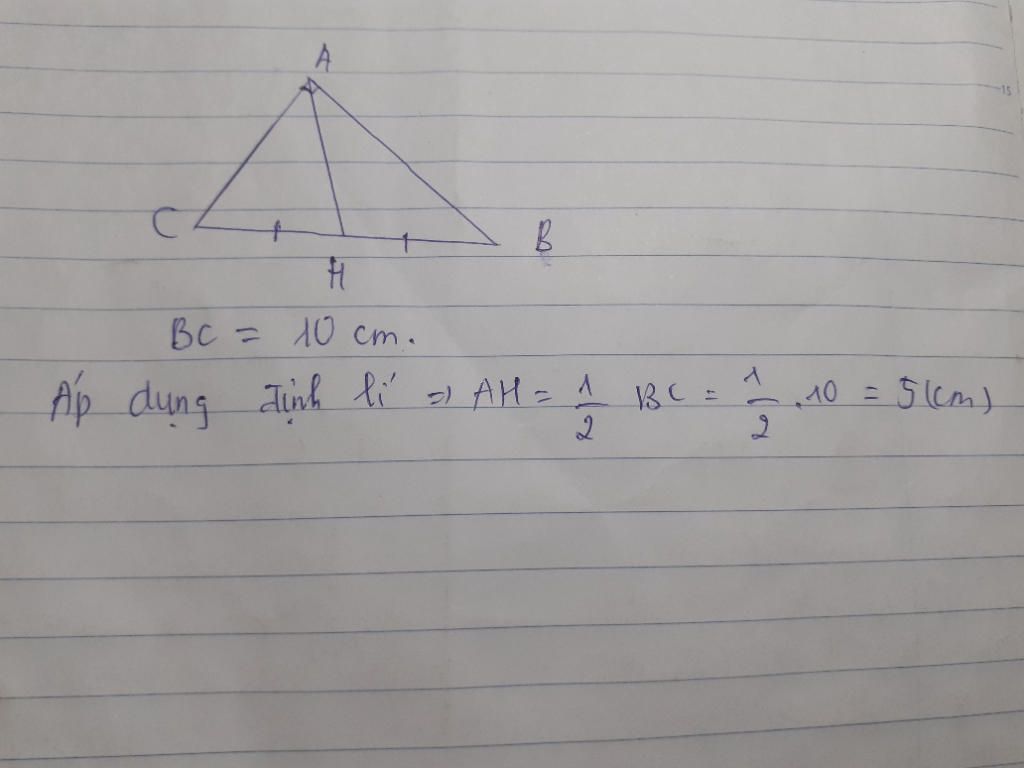 A
C
B
H
BC = 10 cm.
Áp dụng định lí => AH = 1/2 BC = 1/2 . 10 = 5(cm)
15